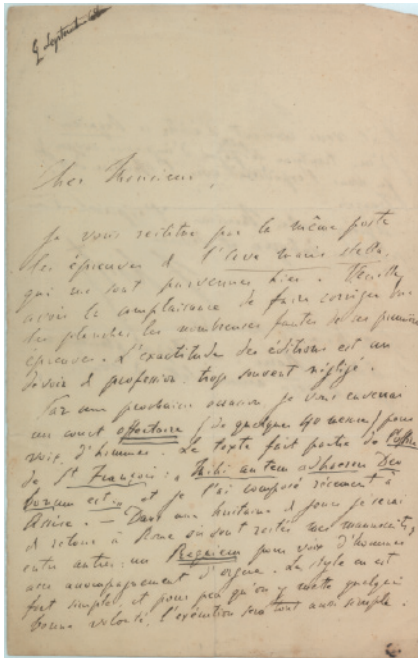 Cher Monsieur,
Je vous restitue par la même poste
les épreuves de l'Ave maris stella,
qui me sont parvenues hier. Veuillez
avoir la complaisance de faire corriger sur
les planches les nombreuses fautes de ces premières
épreuves. L'exactitude des éditions est un
devoir de profession trop souvent négligé.
Par une prochaine occasion je vous enverrai
un court offertoire (de quelques 40 mesures) pour
voix d'hommes. Le texte fait partie de l'office
de St François: "Mihi autem adhaerere Deo
bonum est" et je l'ai composé récemment à
Assise. — Dans une huitaine de jours je serai
de retour à Rome où sont restés mes manuscrits,
entre autres: un Requiem pour voix d'hommes
avec accompagnement d'orgue. Le style en est
fort simple, et pour peu qu'on y mette quelque
bonne volonté, l'exécution sera tout aussi simple.